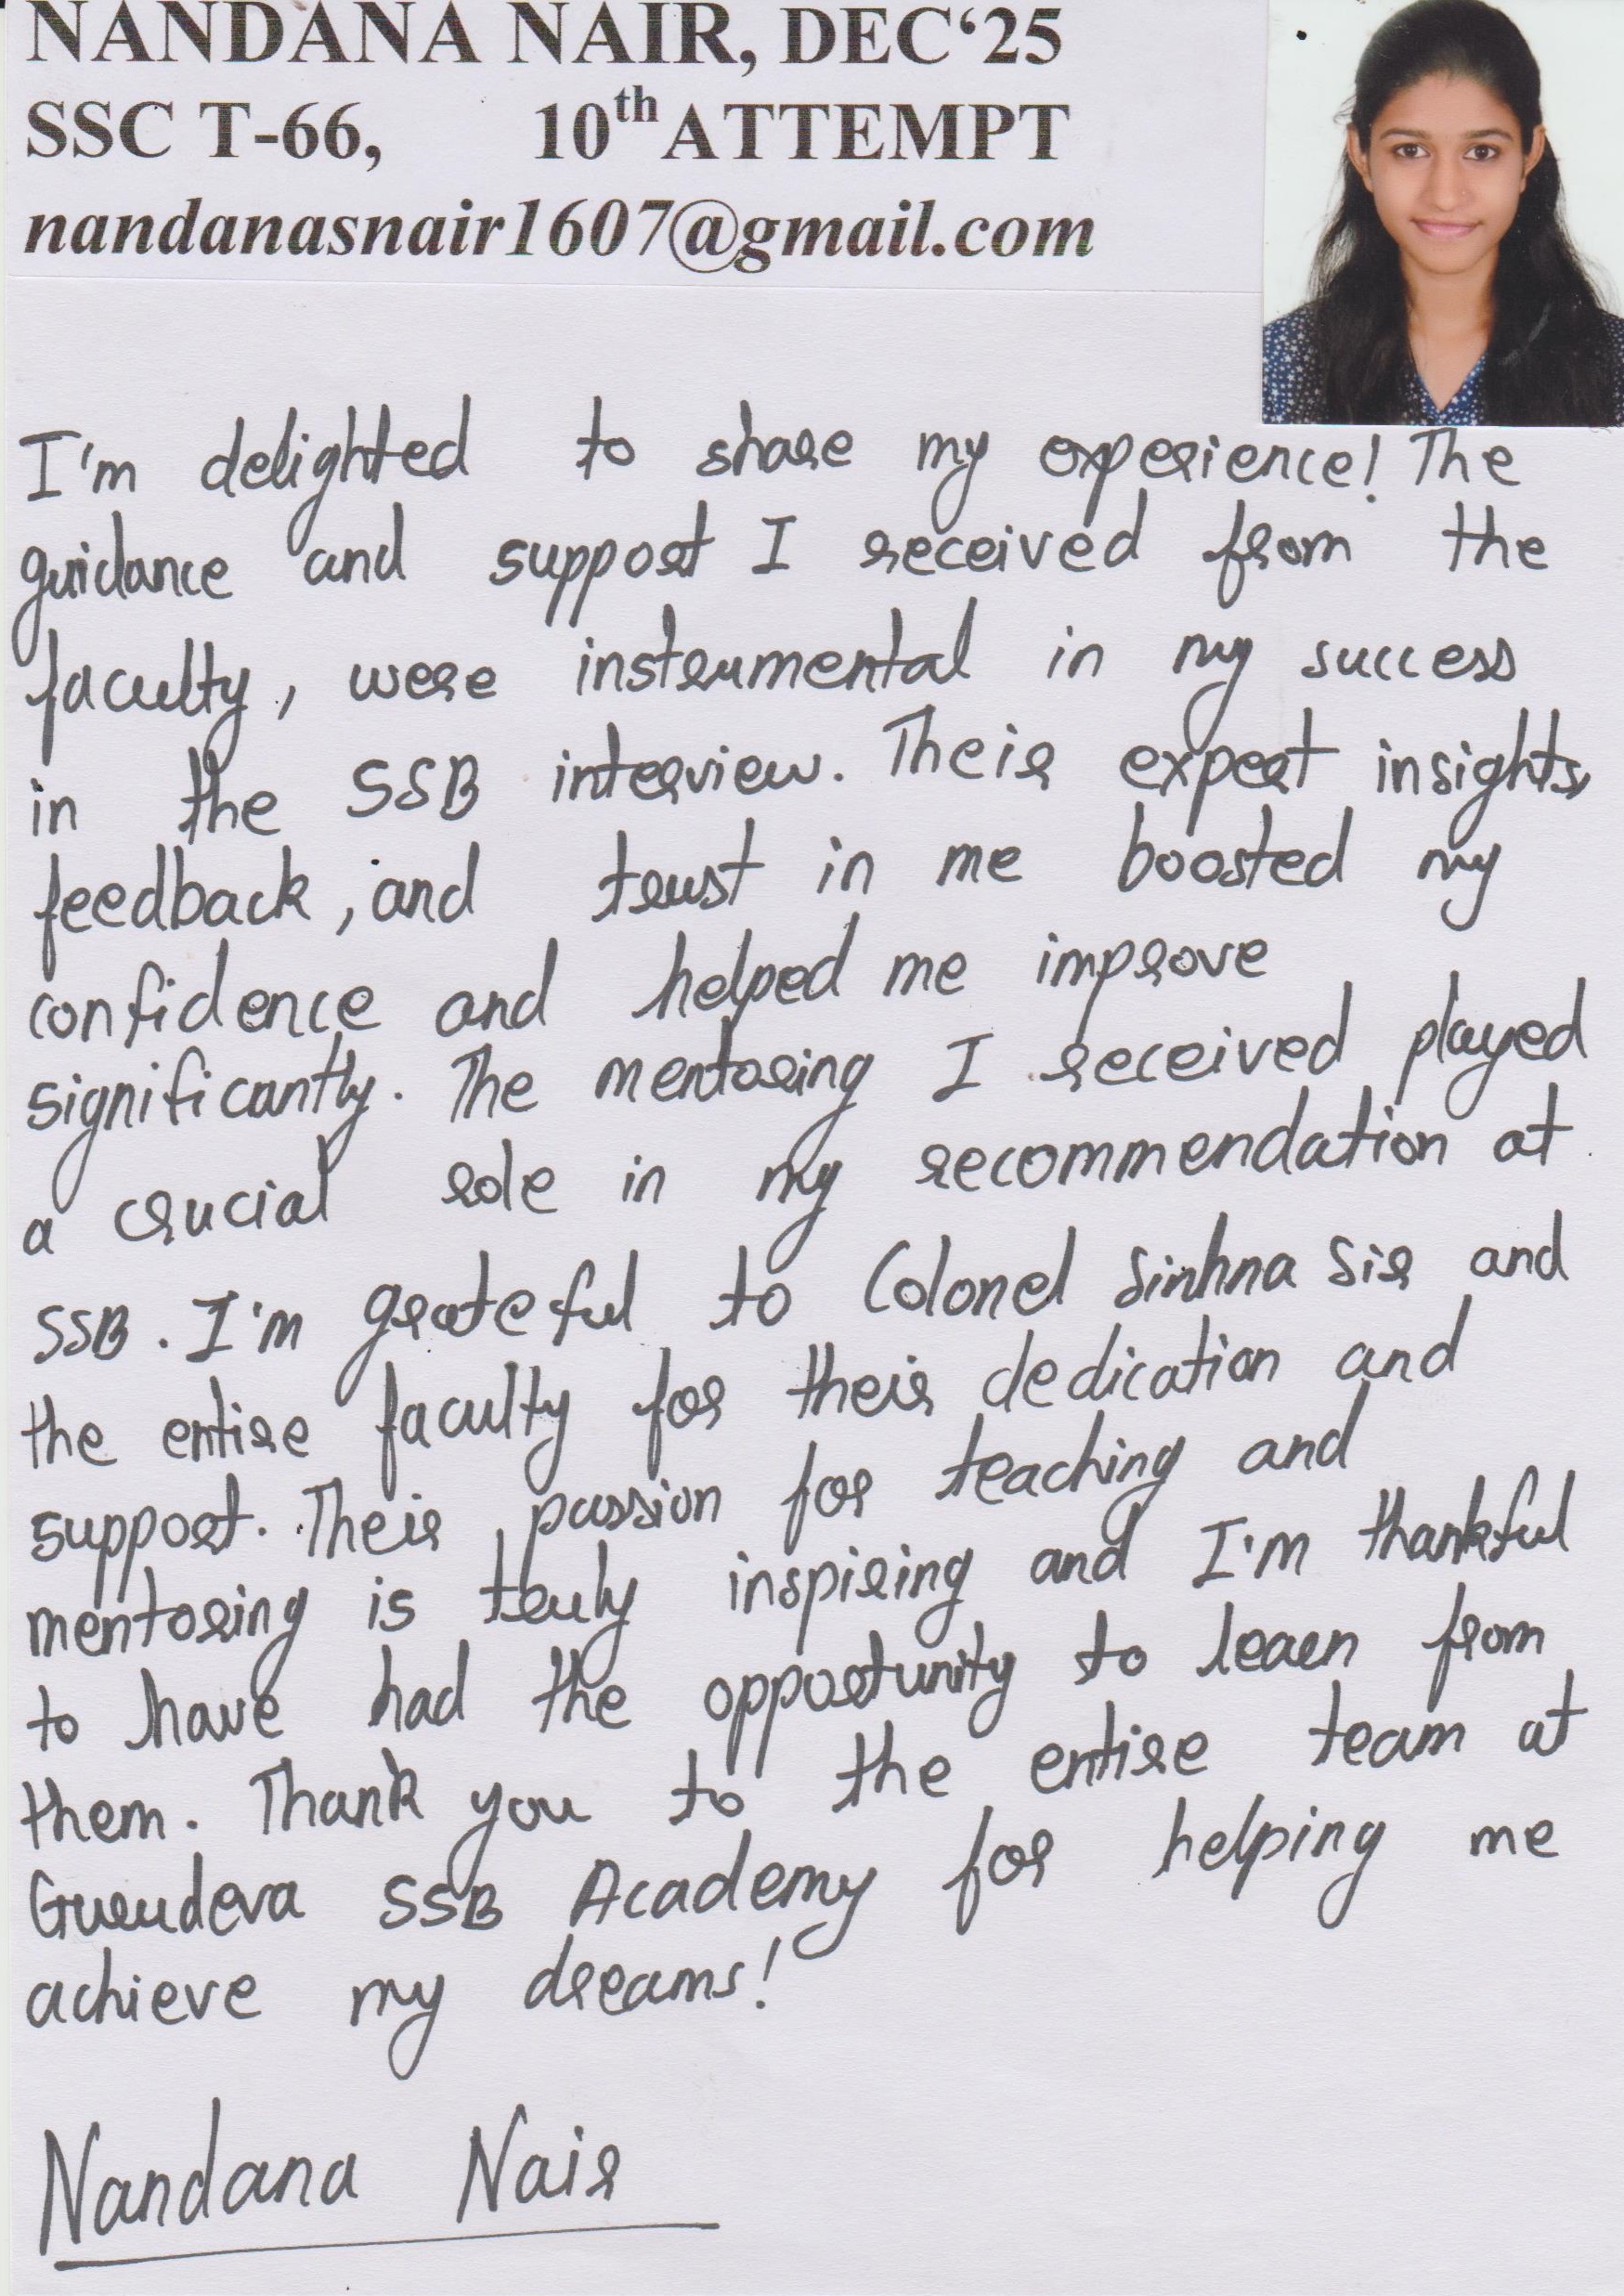 NANDANA NAIR, DEC‘25
SSC T-66, 10th ATTEMPT
nandanasnair1607@gmail.com
I'm delighted to share my experience! The
guidance and support I received from the
faculty, were instrumental in my success
in the SSB interview. Their expert insights,
feedback, and trust in me boosted my
confidence and helped me improve
significantly. The mentoring I received played
a crucial role in my recommendation at
SSB. I'm grateful to Colonel Sinhna Sir and
the entire faculty for their dedication and
support. Their passion for teaching and
mentoring is truly inspiring and I'm thankful
to have had the opportunity to learn from
them. Thank you to the entire team at
Gurudeva SSB Academy for helping me
achieve my dreams!
Nandana Nair